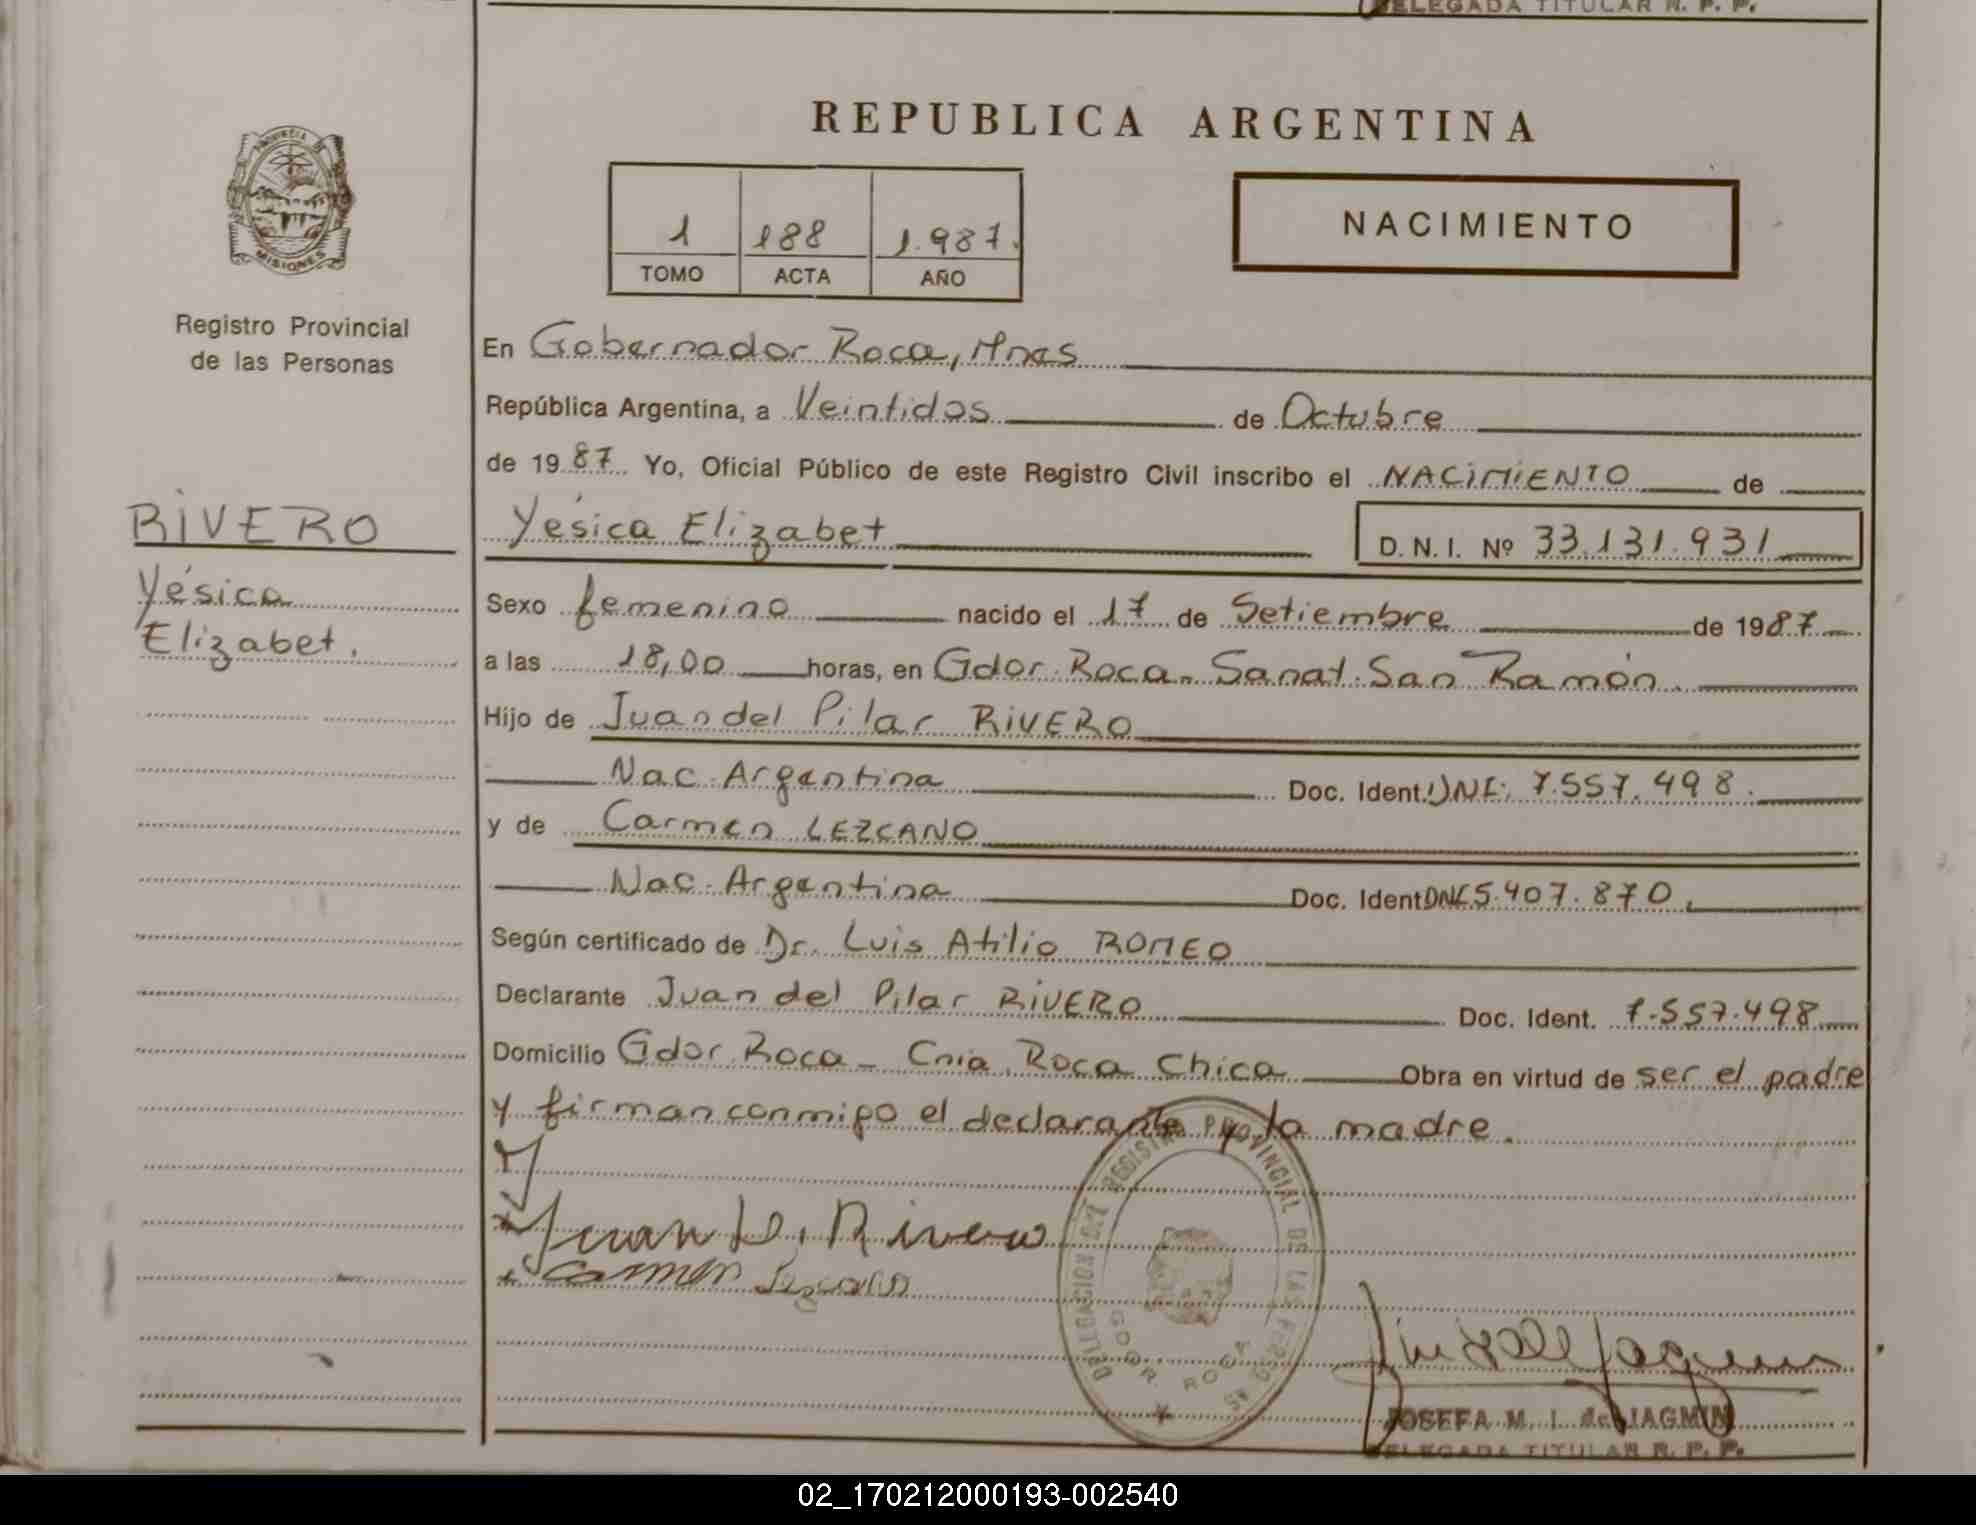 DELEGADA TITULAR R. P. P.
REPUBLICA ARGENTINA
PROVINCIA DE
MISIONES
1 188 1.987.
TOMO ACTA AÑO
NACIMIENTO
Registro Provincial
de las Personas
RIVERO
Yésica
Elizabet.
En Gobernador Roca, Mnes
República Argentina, a Veintidos de Octubre
de 19 87 Yo, Oficial Público de este Registro Civil inscribo el NACIMIENTO de
Yésica Elizabet D. N. I. Nº 33.131.931
Sexo femenino nacido el 17 de Setiembre de 1987
a las 18,00 horas, en Gdor. Roca. Sanat. San Ramón.
Hijo de Juan del Pilar RIVERO
Nac. Argentina Doc. Ident. DNI: 7.557.498.
y de Carmen LEZCANO
Nac. Argentina Doc. Ident DNI 5.407.870.
Según certificado de Dr. Luis Atilio ROMEO
Declarante Juan del Pilar RIVERO Doc. Ident. 7.557.498
Domicilio Gdor. Roca - Cnia. Roca Chica Obra en virtud de ser el padre
y firman conmigo el declarante y la madre.
Juan D. Rivero
Carmen Lezcano
DELEGACION DEL REGISTRO PROVINCIAL DE LAS PERSONAS
GDOR. ROCA
JOSEFA M. I. de JAGMIN
DELEGADA TITULAR R. P. P.
02_170212000193-002540